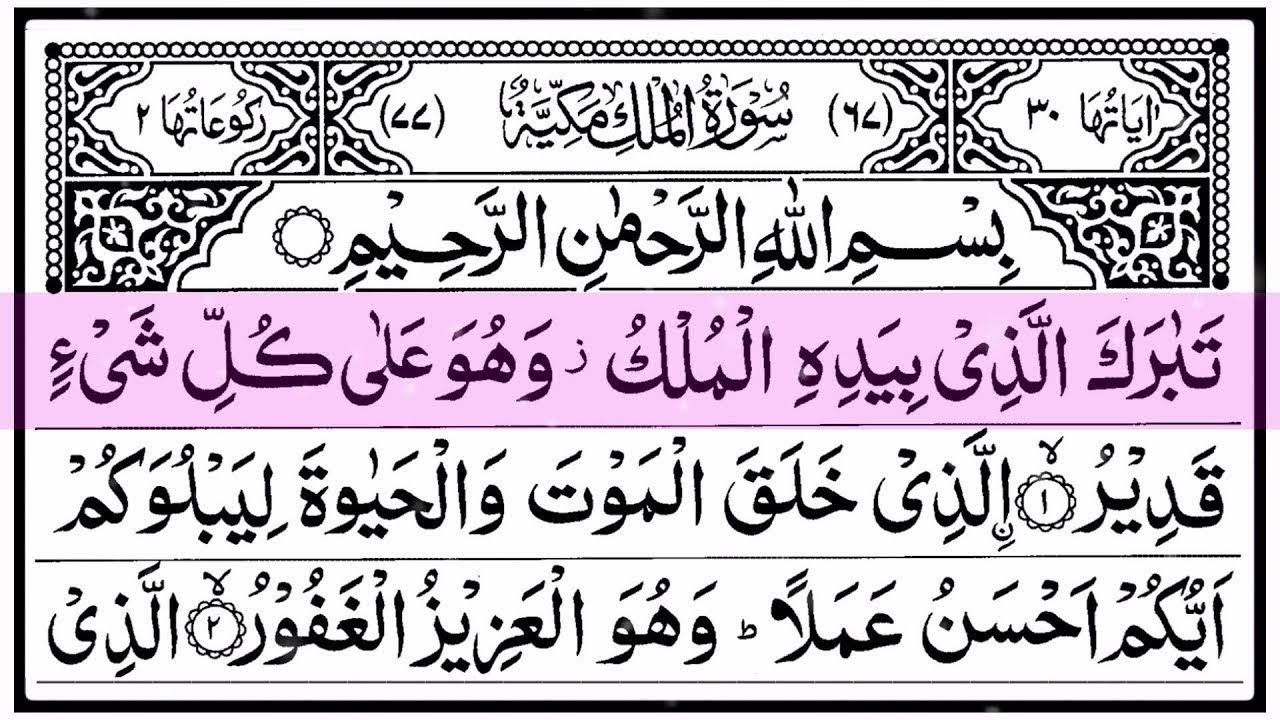 اٰيَاتُهَا ٣٠ (٦٧) سُوْرَةُ الْمُلْكِ مَكِّيَّةٌ (٧٧) رُكُوْعَاتُهَا ٢
بِسْمِ اللّٰهِ الرَّحْمٰنِ الرَّحِيْمِ
تَبٰرَكَ الَّذِيْ بِيَدِهِ الْمُلْكُ ز وَهُوَ عَلٰى كُلِّ شَيْءٍ
قَدِيْرُ ۙ ١ ۨالَّذِيْ خَلَقَ الْمَوْتَ وَالْحَيٰوةَ لِيَبْلُوَكُمْ
اَيُّكُمْ اَحْسَنُ عَمَلًا ؕ وَهُوَ الْعَزِيْزُ الْغَفُوْرُ ۙ ٢ الَّذِيْ